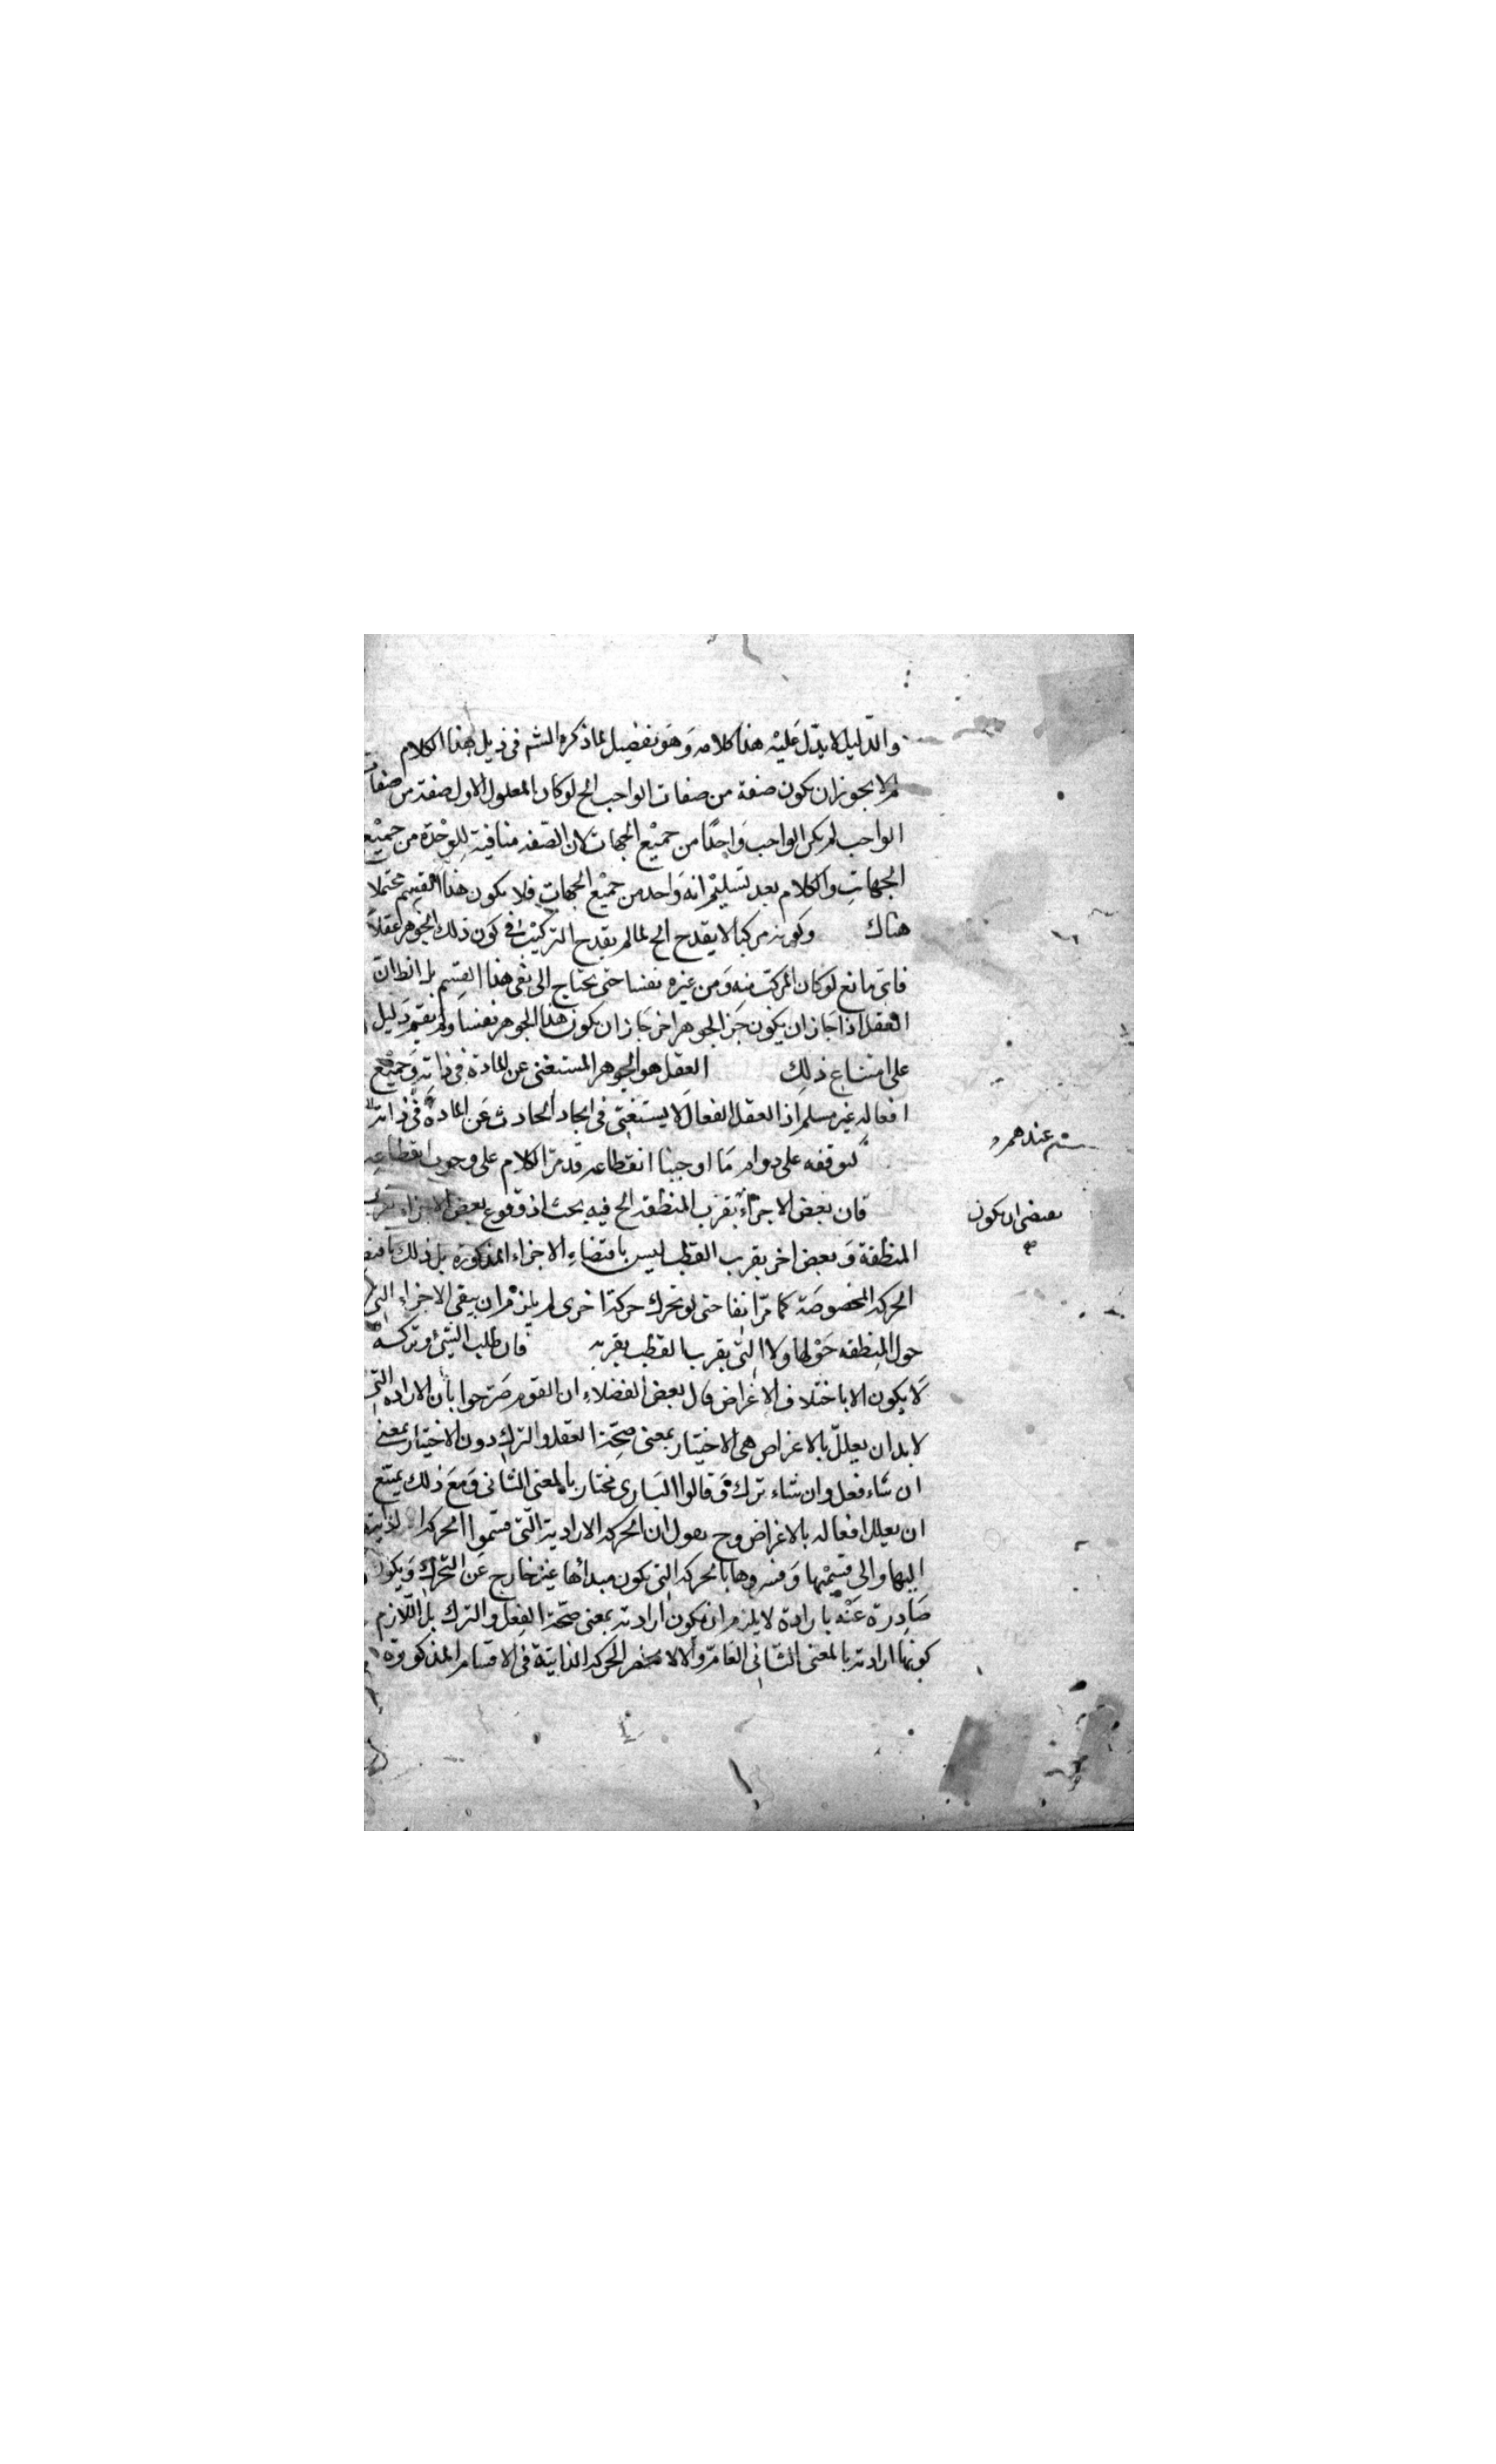 والدليل لا يدل عليه هذا كلامه وهو تفصيل لما ذكره الشم في ذيل هذا الكلام
لم لا يجوز ان يكون صفة من صفات الواجب الخ لو كان المعلول الاول صفة من صفات
الواجب لم يكن الواجب واحدا من جميع الجهات لان الصفة منافية للوحدة من جميع
الجهات والكلام بعد تسليم انه واحد من جميع الجهات فلا يكون هذا القسم محتملا
هناك وكونه مركبا لا يقدح الخ لما لم يقدح التركيب في كون ذلك الجوهر عقلا
فاي مانع لو كان المركب منه ومن غيره نفسا حتى يحتاج الى نفي هذا القسم بل الظ ان
العقل اذا جاز ان يكون جزء الجوهر اخر جاز ان يكون هذا الجوهر نفسا ولم يقم دليل
على امتناع ذلك العقل هو الجوهر المستغني عن المادة في ذاته وجميع
افعاله غير مسلم اذ العقل الفعال لا يستغني في ايجاد الحادث عن المادة في ذاته
لتوقفه على دوام ما اوجبنا انقطاعه قد مر الكلام على وجوب انقطاعه
فان بعض الاجزاء بقرب المنطقة الخ فيه بحث اذ وقوع بعض الاجزاء بقرب
المنطقة وبعض اخر بقرب القطب ليس باقتضاء الاجزاء المذكورة بل ذلك
الحركة المخصوصة كما مر انفا حتى لو تحرك حركة اخرى لم يلزم ان يبقى الاجزاء التي
حول المنطقة حولها ولا التي بقرب القطب بقربه فان طلب الشيء وتركه
لا يكون الا باختلاف الاغراض قال بعض الفضلاء ان القوم صرحوا بان الارادة التي
لا بد ان يعلل بالاغراض هي الاختيار بمعنى صحة الفعل والترك دون الاختيار بمعنى
ان شاء فعل وان شاء ترك وقالوا الباري مختار بالمعنى الثاني ومع ذلك يمتنع
ان يعلل افعاله بالاغراض وح نقول ان الحركة الارادية التي قسموا الحركة الذاتية
اليها والى قسميها وفسروها بالحركة التي يكون مبدأها غير خارج عن المتحرك ويكون
صادرة عنه بارادة لا يلزم ان يكون ارادته بمعنى صحة الفعل والترك بل اللازم
كونها ارادته بالمعنى الثاني العام والا لا ينحصر الحركة الذاتية في الاقسام المذكورة
عندهم و
يقتضي ان يكون